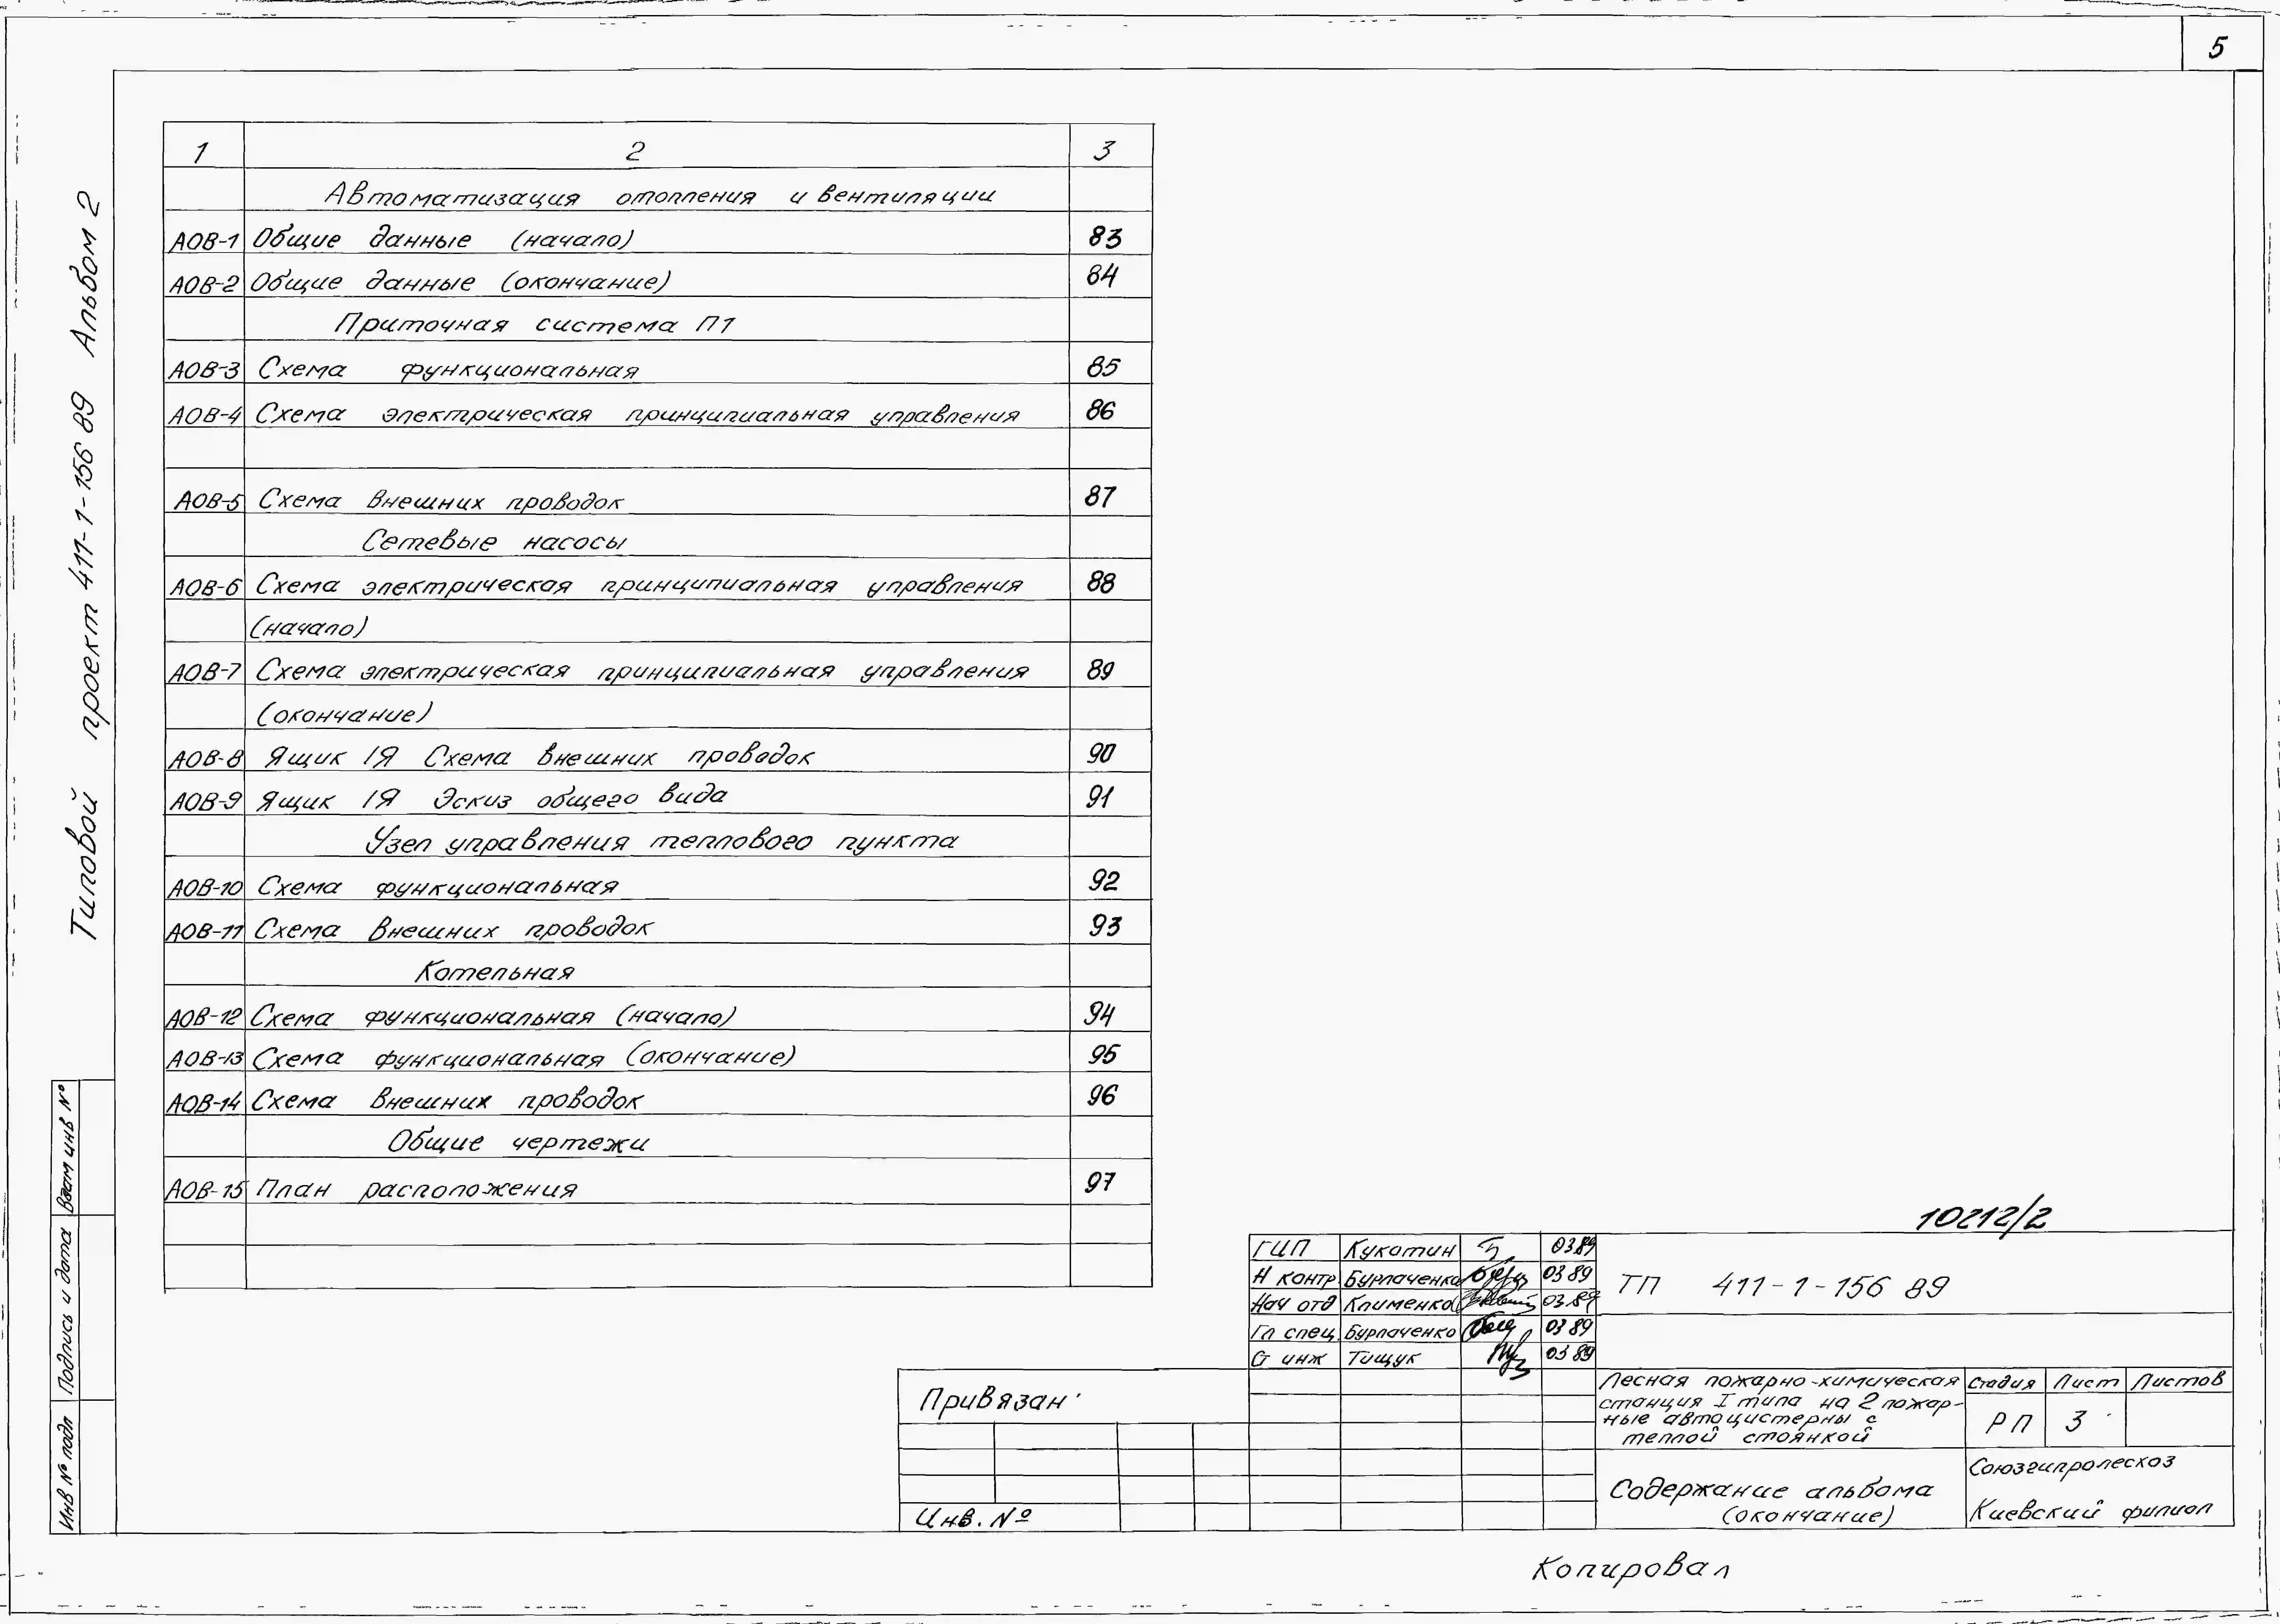 5
Типовой проект 411-1-156 89 Альбом 2
1 2 3
Автоматизация отопления и вентиляции
АОВ-1 Общие данные (начало) 83
АОВ-2 Общие данные (окончание) 84
Приточная система П1
АОВ-3 Схема функциональная 85
АОВ-4 Схема электрическая принципиальная управления 86
АОВ-5 Схема внешних проводок 87
Сетевые насосы
АОВ-6 Схема электрическая принципиальная управления 88
(начало)
АОВ-7 Схема электрическая принципиальная управления 89
(окончание)
АОВ-8 Ящик 1Я Схема внешних проводок 90
АОВ-9 Ящик 1Я Эскиз общего вида 91
Узел управления теплового пункта
АОВ-10 Схема функциональная 92
АОВ-11 Схема внешних проводок 93
Котельная
АОВ-12 Схема функциональная (начало) 94
АОВ-13 Схема функциональная (окончание) 95
АОВ-14 Схема внешних проводок 96
Общие чертежи
АОВ-15 План расположения 97
Взам инв №
Подпись и дата
Инв № подл
10212/2
ГИП Кукотин 03.89
Н контр Бурлаченко 03 89
Нач отд Клименко 03.89
Гл спец Бурлаченко 03 89
Ст инж Тищук 03 89
ТП 411-1-156 89
Привязан
Инв. №
Лесная пожарно-химическая
станция I типа на 2 пожар-
ные автоцистерны с
теплой стоянкой
Стадия Лист Листов
РП 3
Содержание альбома
(окончание)
Союзгипролесхоз
Киевский филиал
Копировал